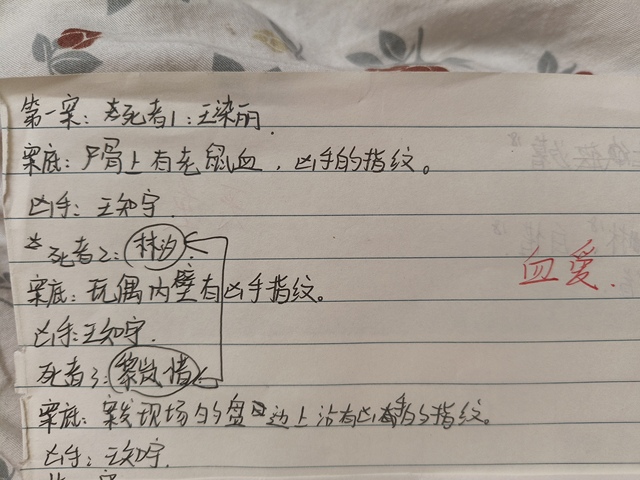 第一案：死者1：王染丽.
案底：尸骨上有老鼠血，凶手的指纹。
凶手：王知宁.
死者2：林汐
案底：玩偶内壁有凶手指纹。
血爱.
凶手：王知宁.
死者3：黎岚情
案底：案发现场的盘口边上沾有凶手的指纹。
凶手：王知宁.